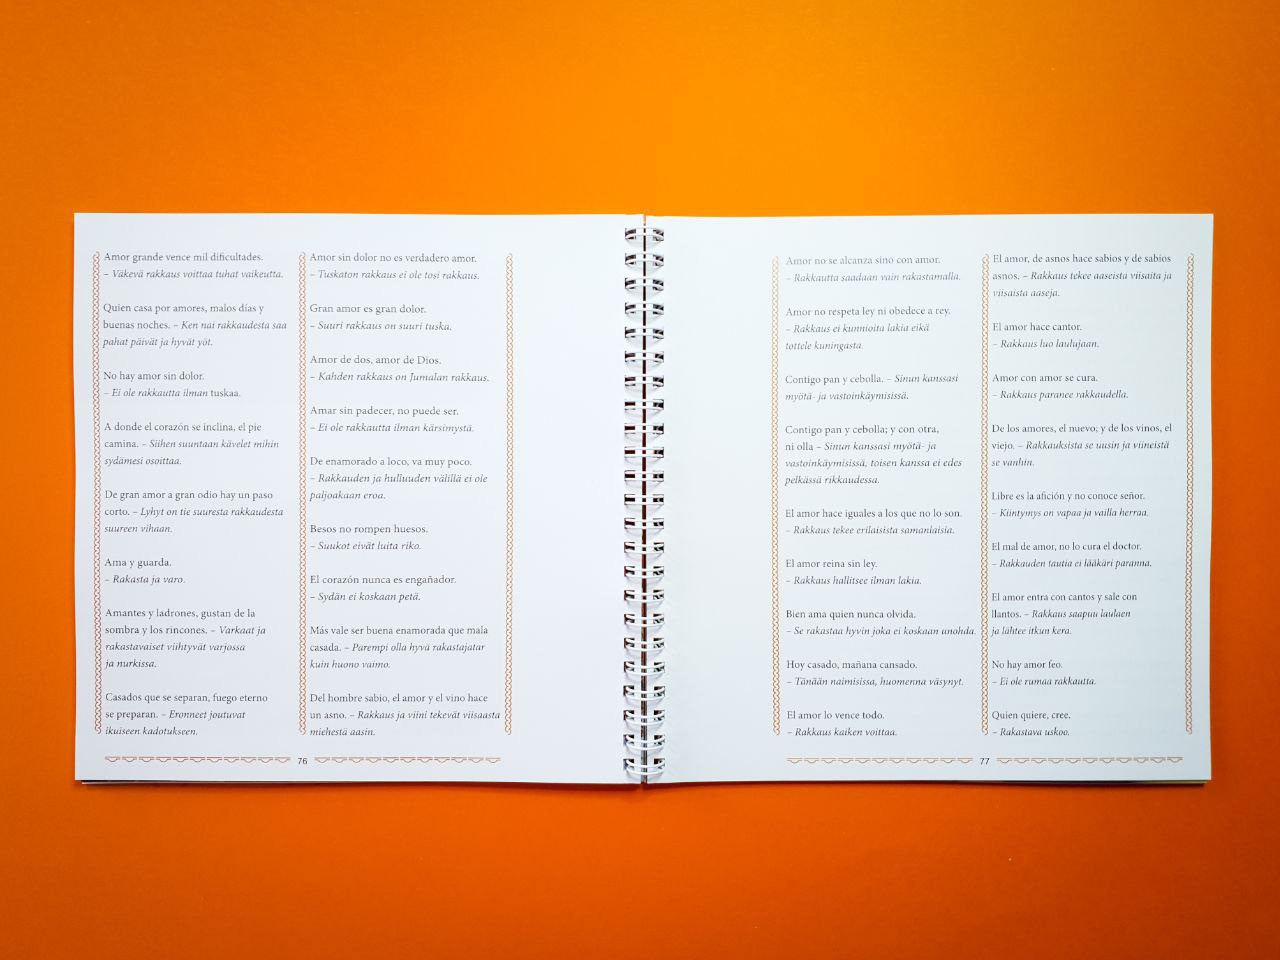 Amor grande vence mil dificultades.
– Väkevä rakkaus voittaa tuhat vaikeutta.
Quien casa por amores, malos días y
buenas noches. – Ken nai rakkaudesta saa
pahat päivät ja hyvät yöt.
No hay amor sin dolor.
– Ei ole rakkautta ilman tuskaa.
A donde el corazón se inclina, el pie
camina. – Siihen suuntaan kävelet mihin
sydämesi osoittaa.
De gran amor a gran odio hay un paso
corto. – Lyhyt on tie suuresta rakkaudesta
suureen vihaan.
Ama y guarda.
– Rakasta ja varo.
Amantes y ladrones, gustan de la
sombra y los rincones. – Varkaat ja
rakastavaiset viihtyvät varjossa
ja nurkissa.
Casados que se separan, fuego eterno
se preparan. – Eronneet joutuvat
ikuiseen kadotukseen.
Amor sin dolor no es verdadero amor.
– Tuskaton rakkaus ei ole tosi rakkaus.
Gran amor es gran dolor.
– Suuri rakkaus on suuri tuska.
Amor de dos, amor de Dios.
– Kahden rakkaus on Jumalan rakkaus.
Amar sin padecer, no puede ser.
– Ei ole rakkautta ilman kärsimystä.
De enamorado a loco, va muy poco.
– Rakkauden ja hulluuden välillä ei ole
paljoakaan eroa.
Besos no rompen huesos.
– Suukot eivät luita riko.
El corazón nunca es engañador.
– Sydän ei koskaan petä.
Más vale ser buena enamorada que mala
casada. – Parempi olla hyvä rakastajatar
kuin huono vaimo.
Del hombre sabio, el amor y el vino hace
un asno. – Rakkaus ja viini tekevät viisaasta
miehestä aasin.
76
Amor no se alcanza sino con amor.
– Rakkautta saadaan vain rakastamalla.
Amor no respeta ley ni obedece a rey.
– Rakkaus ei kunnioita lakia eikä
tottele kuningasta.
Contigo pan y cebolla. – Sinun kanssasi
myötä- ja vastoinkäymisissä.
Contigo pan y cebolla; y con otra,
ni olla – Sinun kanssasi myötä- ja
vastoinkäymisissä, toisen kanssa ei edes
pelkässä rikkaudessa.
El amor hace iguales a los que no lo son.
– Rakkaus tekee erilaisista samanlaisia.
El amor reina sin ley.
– Rakkaus hallitsee ilman lakia.
Bien ama quien nunca olvida.
– Se rakastaa hyvin joka ei koskaan unohda.
Hoy casado, mañana cansado.
– Tänään naimisissa, huomenna väsynyt.
El amor lo vence todo.
– Rakkaus kaiken voittaa.
El amor, de asnos hace sabios y de sabios
asnos. – Rakkaus tekee aaseista viisaita ja
viisaista aaseja.
El amor hace cantor.
– Rakkaus luo laulujaan.
Amor con amor se cura.
– Rakkaus paranee rakkaudella.
De los amores, el nuevo; y de los vinos, el
viejo. – Rakkauksista se uusin ja viineistä
se vanhin.
Libre es la afición y no conoce señor.
– Kiintymys on vapaa ja vailla herraa.
El mal de amor, no lo cura el doctor.
– Rakkauden tautia ei lääkäri paranna.
El amor entra con cantos y sale con
llantos. – Rakkaus saapuu laulaen
ja lähtee itkun kera.
No hay amor feo.
– Ei ole rumaa rakkautta.
Quien quiere, cree.
– Rakastava uskoo.
77